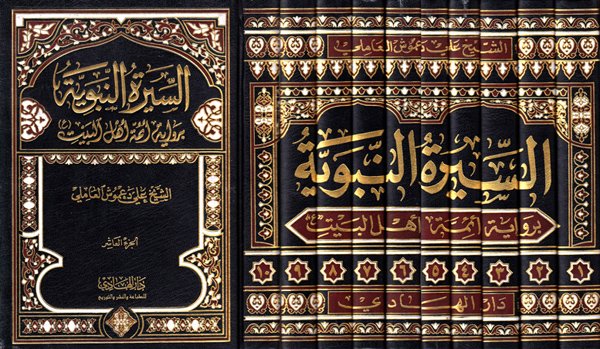 السيرة النبوية
برواية أئمة أهل البيت
الشيخ علي دعموش العاملي
الجزء العاشر
دار الهادي
للطباعة والنشر والتوزيع
الشيخ علي دعموش العاملي
السِّيرَةُ النَّبَوِيَّةُ
برواية أئمة أهل البيت
١٠ ٩ ٨ ٧ ٦ ٥ ٤ ٣ ٢ ١
دار الهادي